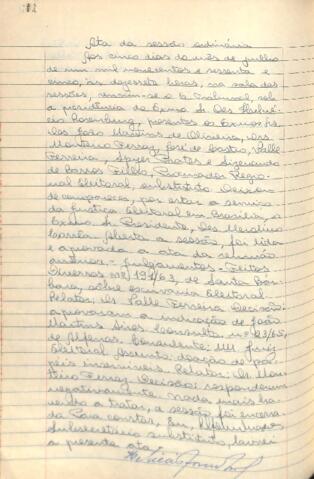 Ata da sessão ordinária
Aos cinco dias do mês de julho
de um mil novecentos e sessenta e
cinco, às dezessete horas, na sala das
sessões, reuniu-se o Tribunal, sob
a presidência do Exmo Sr Des
presentes os Exmos Srs.
Des João Martins de Oliveira, Drs.
Monteiro Ferraz, José de Castro, Valle
Ferreira, Sayer Prates e Sizenando
de Barros Filho, Procurador Regio-
nal Eleitoral, substituto Deixou
de comparecer, por estar a serviço
da Justiça Eleitoral em Brasília, o
Exmo Sr Presidente, Des
Aberta a sessão, foi lida
e aprovada a ata da reunião
anterior. - Julgamentos - Feitos
Diversos nº 191/63, de Santa Bár-
bara, sobre escrivania Eleitoral
Relator: Dr Valle Ferreira Decisão:
aprovaram a indicação de João
Martins Consulta nº 23/65,
de Alfenas. Consulente: MM Juiz
Eleitoral Assunto: doação de pa-
peis inservíveis Relator: Dr Mon-
teiro Ferraz Decisão: responderam
negativamente. Nada mais ha-
vendo a tratar, a sessão foi encerra-
da Para constar, Eu,
Subsecretário substituto, lavrei
a presente ata.